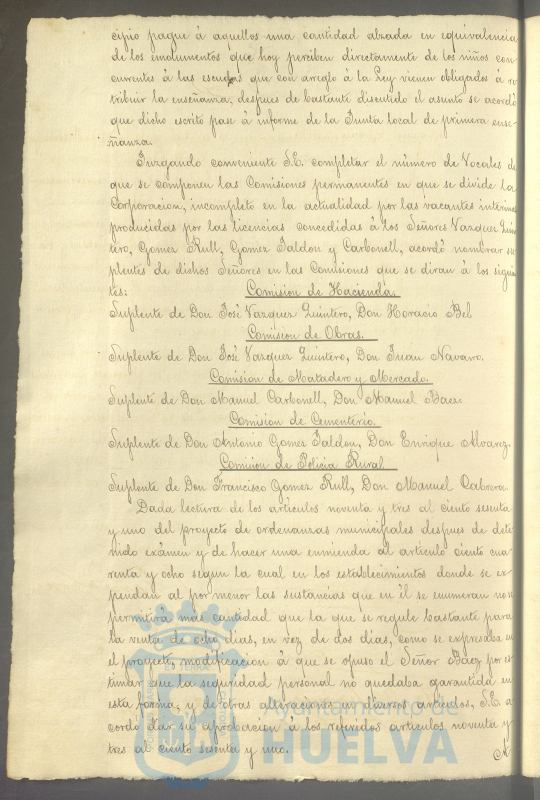 cipio pague á aquellos una cantidad alzada en equivalencia
de los emolumentos que hoy perciben directamente de los niños con-
currentes á las escuelas que con arreglo á la Ley vienen obligados á re
tribuir la enseñanza, despues de bastante discutido el asunto se acordó
que dicho escrito pase á informe de la Junta local de primera ense-
ñanza.
Juzgando conveniente S.E. completar el número de Vocales de
que se componen las Comisiones permanentes en que se divide la
Corporacion, incompleto en la actualidad por las vacantes interinas
producidas por las licencias concedidas á los Señores Vazquez Quin
tero, Gomez Rull, Gomez Jaldon y Carbonell, acordó nombrar su
plentes de dichos Señores en las Comisiones que se diran á los siguien
tes:
Comision de Hacienda.
Suplente de Don José Vazquez Quintero, Don Horacio Bel
Comision de Obras.
Suplente de Don José Vazquez Quintero, Don Juan Navarro.
Comision de Matadero y Mercado.
Suplente de Don Manuel Carbonell, Don Manuel Baez
Comision de Cementerio.
Suplente de Don Antonio Gomez Jaldon, Don Enrique Alvarez.
Comision de Policia Rural
Suplente de Don Francisco Gomez Rull, Don Manuel Cabrera.
Dada lectura de los artículos noventa y tres al ciento sesenta
y uno del proyecto de ordenanzas municipales despues de dete
nido exámen y de hacer una enmienda al artículo ciento cua
renta y ocho segun la cual en los establecimientos donde se ex
pendan al por menor las sustancias que en él se enumeran no se
permitirá mas cantidad que la que se regule bastante para
la venta de ocho dias, en vez de dos dias, como se expresaba en
el proyecto, modificacion á que se opuso el Señor Baez por es
timar que la seguridad personal no quedaba garantida en
esta forma, y de otras alteraciones en diversos artículos, S.E. a
cordó dar su aprobacion á los referidos artículos noventa y
tres al ciento sesenta y uno.
Ayuntamiento de
HUELVA